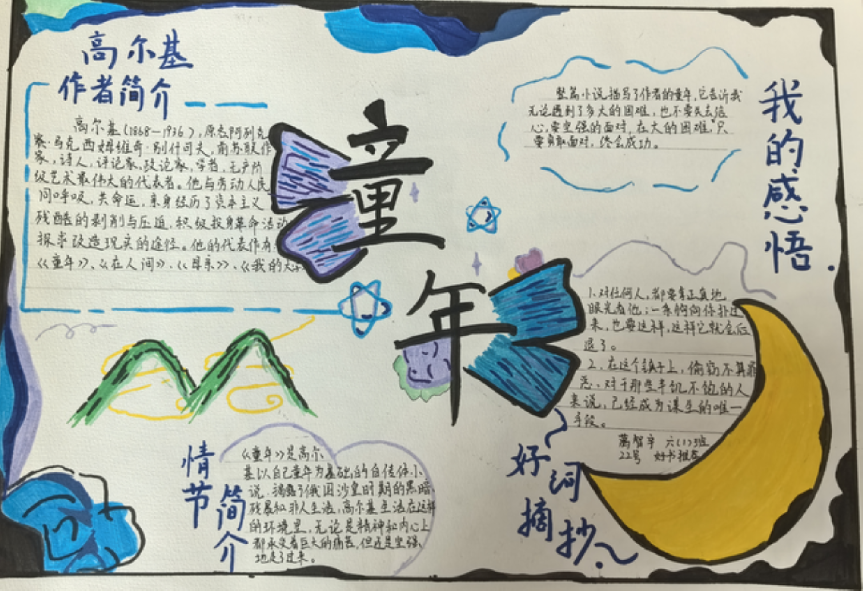 高尔基
作者简介
高尔基(1868—1936),原名阿列克
家·诗人,评论家,政论家,学者,无产阶
级艺术最伟大的代表者。他与劳动人民
同呼吸,共命运,亲身经历了资本主义
残酷的剥削与压迫,积极投身革命活动
探求改造现实的途径。他的代表作有
《童年》、《在人间》、《母亲》、《我的大
童
年
整篇小说描写了作者的童年,它告诉我
无论遇到了多大的困难,也不要失去信
心,要坚强的面对,在大的困难,只
要勇敢面对,终会成功。
我的感悟
1.对任何人,都要
眼光看他;一条狗向你扑过
来,也要这样,这样它就会后
退了。
2、在这个镇子上,偷窃不算罪
恶、对于那些半饥不饱的人
来说,已经成为谋生的唯一
手段。
六(1)班
22号 好书推荐
好词
摘抄
情节
简介
《童年》是高尔
基以自己童年为基础的自传体小
说,揭露了俄国沙皇时期的黑暗
残暴和非人生活,高尔基生活在这样
的环境里,无论是精神和内心上
都承受着巨大的痛苦,但还是坚强
地走了过来。